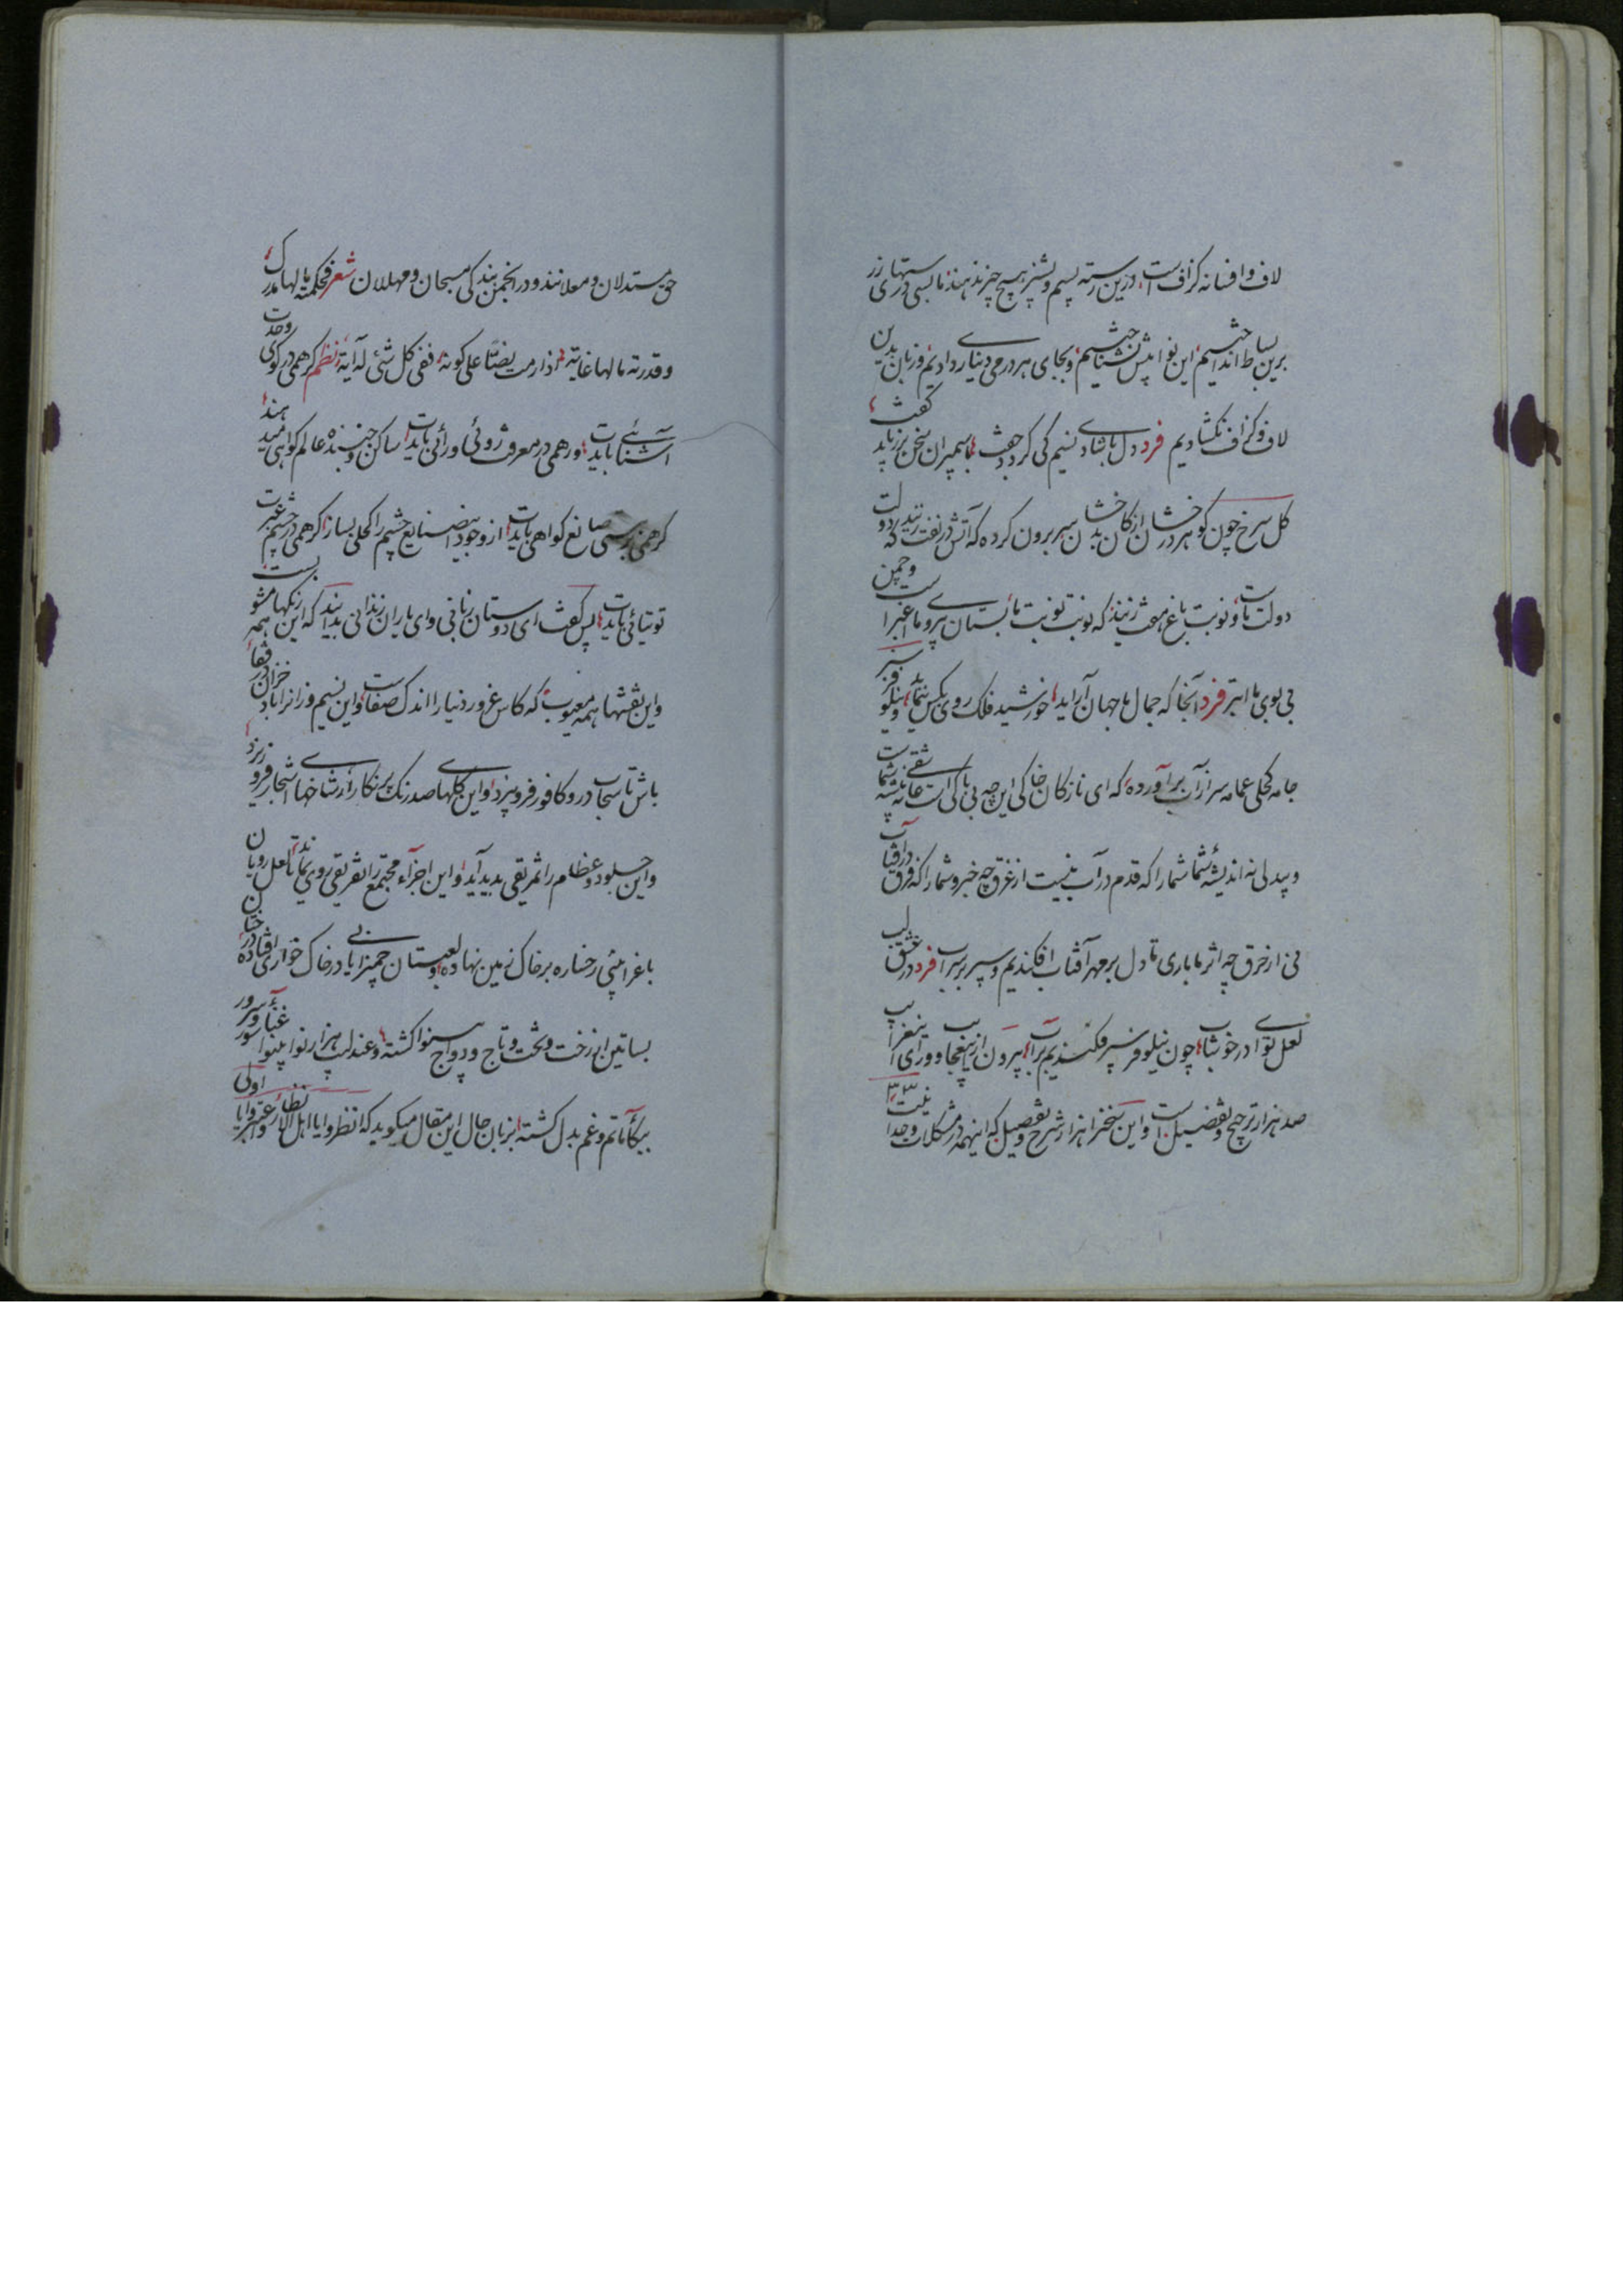 لاف و افسانه گزافست، درین رسته بسیم و پشیز هیچ چیز ندهند ما بسی درستهای زر
برین بساط انداختیم این نوا پیش نشناختیم و بجای هر درمی دیناری دادیم و زبان بدین
لاف و گزاف نگشادیم فرد دل بشادی و نسیم کی گردد جفت با سیمبران سخن بزر باید گفت
گل سرخ چون گوهر درخشان از کان بدخشان سر برون کرده که آتش در نفت زنید که دولت
دولت ماست و نوبت باغ هفت زنید که نوبت نوبت ماست بستان بی روی ما اغبرست و چمن
بی بوی ما ابتر فرد آنجا که جمال ما جهان آراید خورشید فلک روی بکس ننماید و نیلوفر
جامه کحلی عمامه سر از آب برآورده که ای نازکان خاکی این چه بی باکی است عاشقی نه پیشه شماست
و بیدلی نه اندیشه شما شما را که قدم در آب نیست از غرق چه خبر و شما را که فرق در آفتاب
نی از حرق چه اثر ما باری تا دل بر مهر آفتاب افکندیم و سپر بر سر آب فرد در عشق لب
لعل تو ای در خوشاب چون نیلوفر سپر فکندیم بر آب بیرون ازین عجایب و ورای این غرایب
صد هزار ترجیح و تفضیل است و این سخن را هزار شرح و تفصیل که اینهمه در مشکلات وحدانیت
حق مستدلان و معللانند و در انجمن بندگی مسبحان و مهللان شعر فحکمته ما لها مدرک
و قدرته ما لها غایة اذا رمت یضتا علی کونه ففی کل شئی له آیة نظم گر همی در کوی وحدت
آشنائی بایدت ور همی در معرفت روئی و رائی بایدت ساکن و جنبنده عالم گواهی میدهند
گر همی بر هستی صانع گواهی بایدت از وجود این صنایع چشم را کحلی بساز گر همی در چشم عبرت
توتیائی بایدت پس گفت ای دوستان زبانی و ای یاران زندانی بدانید که این همه رنگها مشوبست
و این نقشها همه معیوب که کاس غرور دنیا را اندک صفاست و این نسیم وزانرا باد خزان در قفا
باش تا سحاب در و کافور فرو بیزد و این گلهای صد رنگ پر نگار را از شاخهای اشجار فرو ریزد
و این جلود و عظام را تمزیقی بدید آید و این اجزاء مجتمع را تفریقی روی نماید تا لعل رویان
باغ را بینی رخساره بر خاک زمین نهاده و لعبتان چمن را یابی در خاک خواری افتاده در بن
بساتین از رخت و تخت و تاج و دواج بینوا گشته و عندلیب هزار نوا بینوا غناء و سرور و سور
ببکا و ماتم و غم بدل گشته بزبان حال این مقال میگوید که انظروا یا اهل الانظار و اعتبروا یا اولی